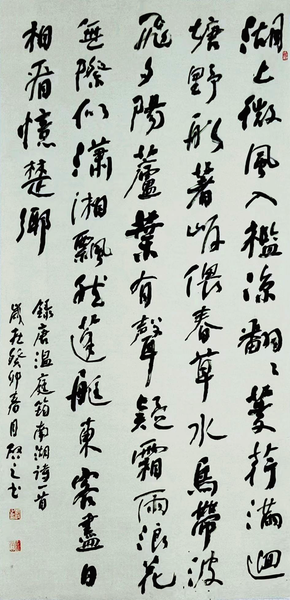 湖上微風入檻涼翻〻菱荇滿迴
塘野船著岸偎春草水鳥帶波
飛夕陽蘆葉有聲疑霜雨浪花
無際似瀟湘飄然蓬艇東客盡日
相看憶楚鄉
錄唐溫庭筠南湖詩一首
歲在癸卯春月之書